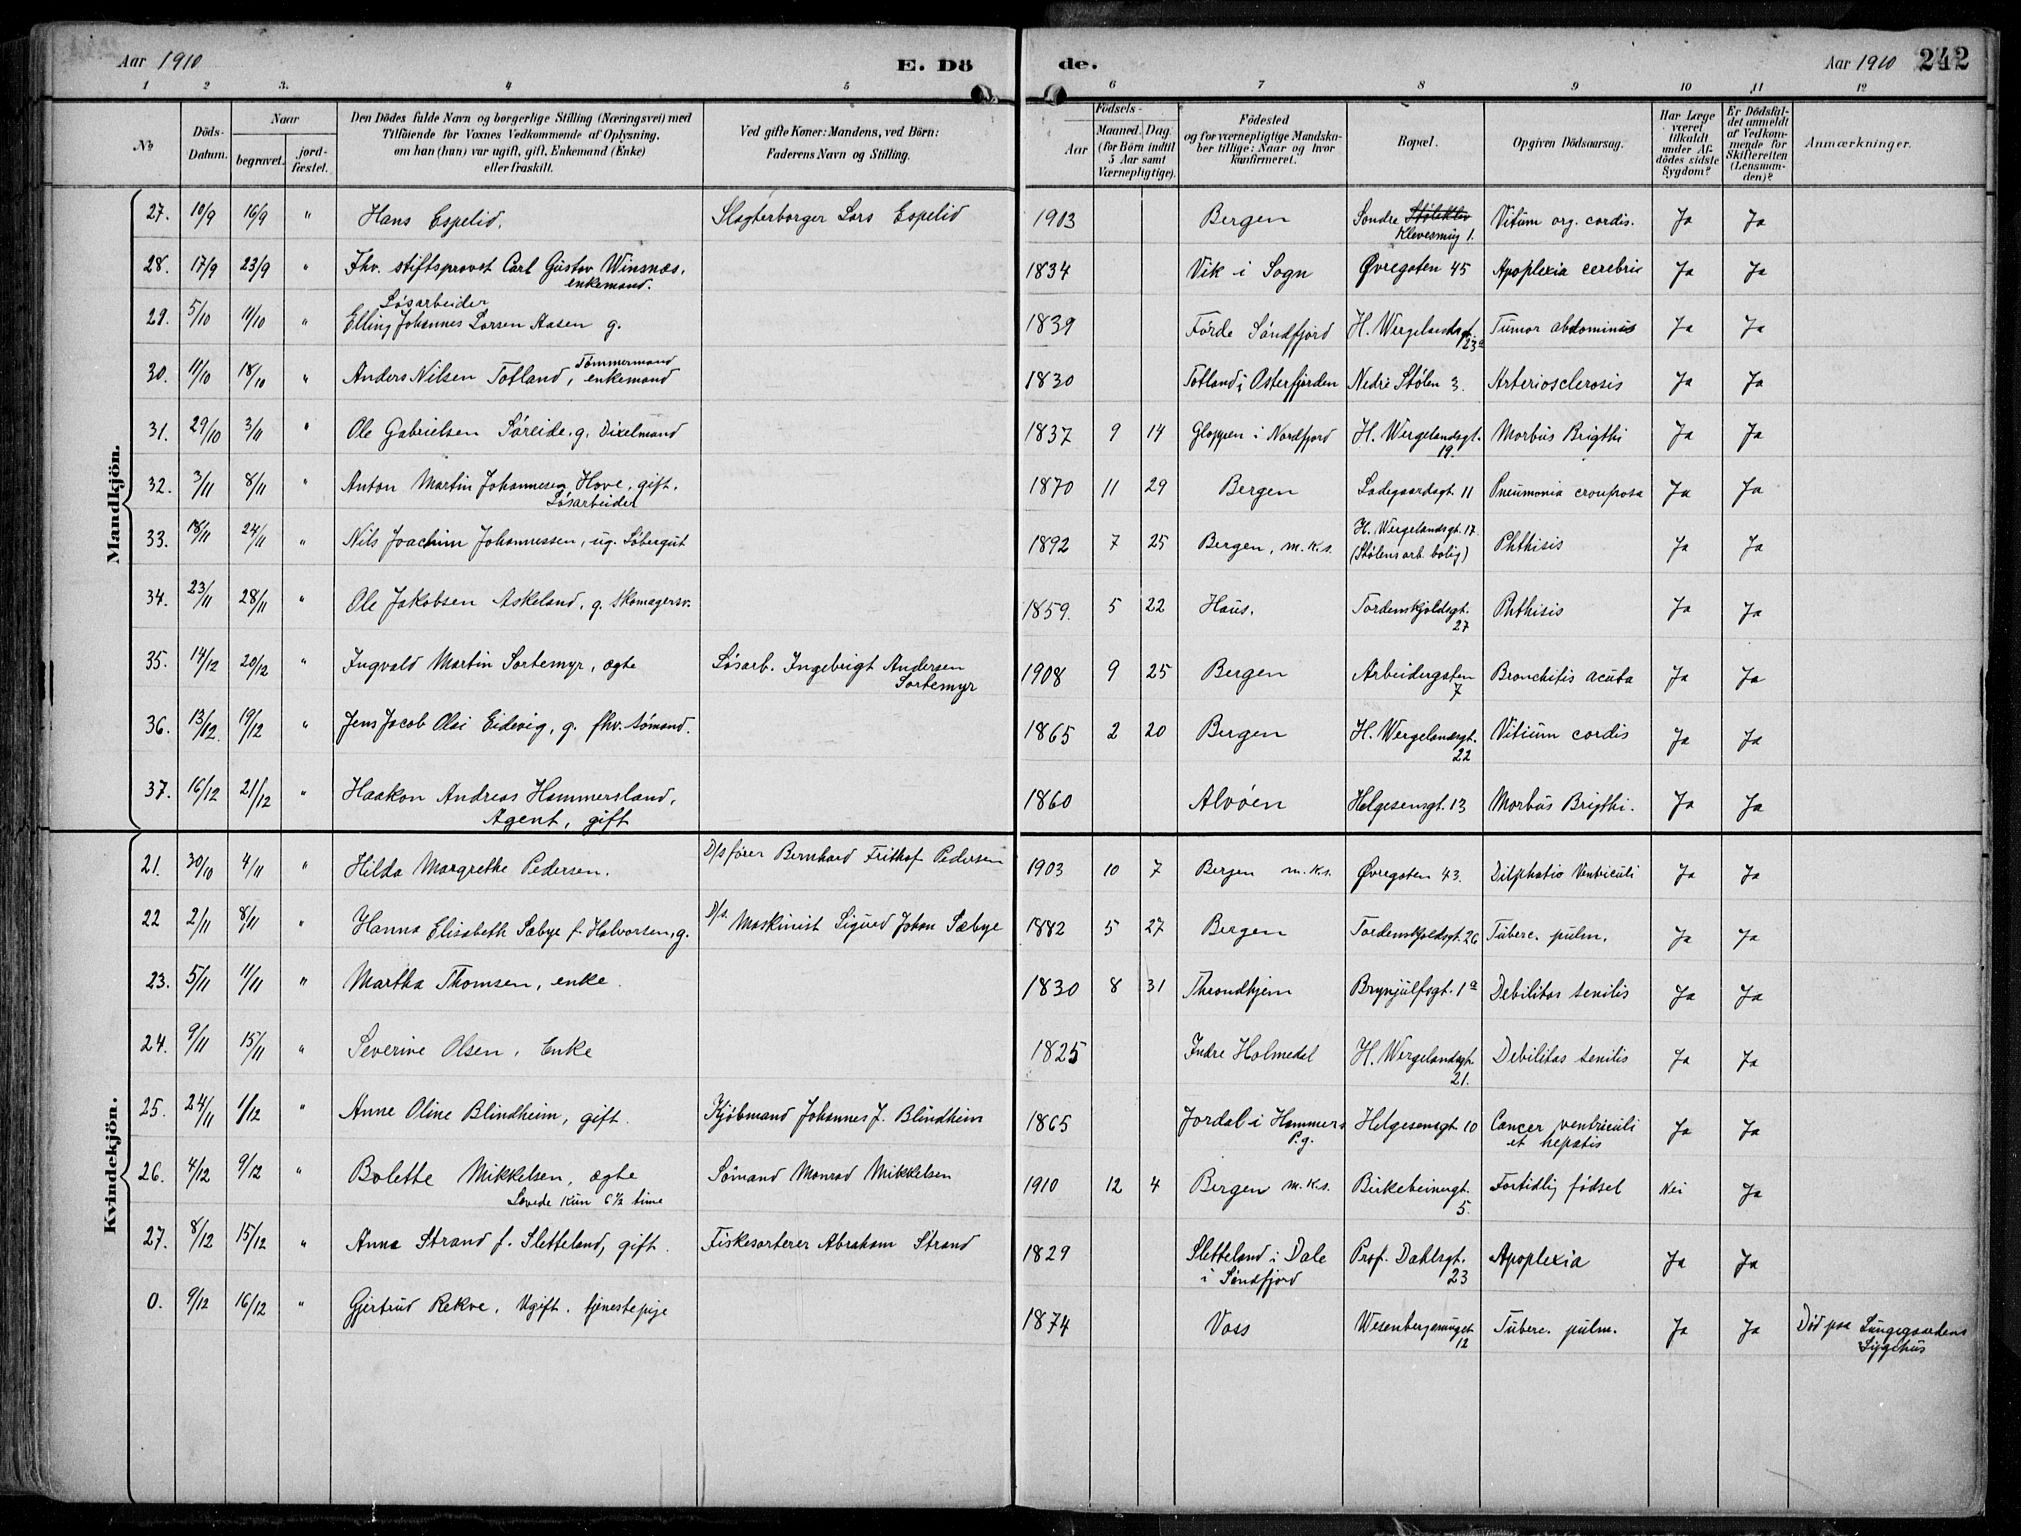 Aar 1910
E. Dö
de.
Aar 1910
242
1 2 3. 4 5 6 7 8 9 10 11 12
No
Döds-
Datum.
Naar
begravet.
jord-
fæstet.
Den Dödes fulde Navn og borgerlige Stilling (Næringsvei) med
Tilföiende for Voxnes Vedkommende af Oplysning,
om han (hun) var ugift, gift, Enkemand (Enke)
eller fraskilt.
Ved gifte Koner: Mandens, ved Börn:
Faderens Navn og Stilling.
Födsels-
Aar
Maaned. Dag.
(for Börn indtil
5 Aar samt
Værnepligtige).
Födested
og for værnepligtige Mandska-
ber tillige: Naar og hvor
konfirmeret.
Bopæl.
Opgiven Dödsaarsag.
Har Læge
været
tilkaldt
under Af-
dödes sidste
Sygdom?
Er Dödsfal-
det anmeldt
af Vedkom-
mende for
Skifteretten
(Lensman-
den)?
Anmærkninger.
Mandkjön.
27. 10/9 16/9 " Hans Espelid. Slagterborger Lars Espelid 1903 Bergen Søndre Stølekley Vitium org. cordis. Ja Ja
Klevesmug 1.
28. 17/9 23/9 " Fhv. stiftsprovst Carl Gustav Winsnæs, 1834 Vik i Sogn Øvregaten 45 Apoplexia cerebri Ja Ja
enkemand.
Løsarbeider
29. 5/10 11/10 " Elling Johannes Larsen Aasen g. 1839 Førde Søndfjord H. Wergelandsgt. Tumor abdominis Ja Ja
23a
Tømmermand
30. 11/10 18/10 " Anders Nilsen Totland, enkemand 1830 Totland i Osterfjorden Nedre Stølen 3. Arteriosclerosis Ja Ja
31. 29/10 3/11 " Ole Gabrielsen Søreide. g. Dixelmand 1837 9 14 Gloppen i Nordfjord H. Wergelandsgt. Morbus Brigthi Ja Ja
19.
32. 3/11 8/11 " Anton Martin Johannesen Hove, gift. 1870 11 29 Bergen Ladegaardsgt. 11 Pneumonia crouposa Ja Ja
Løsarbeider
H. Wergelandsgt. 17
33. 18/11 24/11 " Nils Joachim Johannessen, ug. Løbergut 1892 7 25 Bergen, m.k.s. (Stølens arb. bolig) Phthisis Ja Ja
34. 23/11 28/11 " Ole Jakobsen Askeland, g. Skomagersv. 1859. 5 22 Haus. Tordenskjoldsgt. Phthisis Ja Ja
27
35. 14/12 20/12 " Ingvald Martin Sortemyr, ægte Løsarb. Ingebrigt Andersen 1908 9 25 Bergen Arbeidergaten Bronchitis acuta Ja Ja
Sortemyr
7
36. 13/12. 19/12 " Jens Jacob Olai Eidevig, g. fhv. sømand. 1865 2 20 Bergen H. Wergelandsgt. Vitium cordis Ja Ja
22
37. 16/12 21/12 " Haakon Andreas Hammersland, 1860 Alvøen Helgesensgt. 13 Morbus Brigthi. Ja Ja
Agent, gift
Kvindekjön.
21. 30/10 4/11 " Hilda Margrethe Pedersen. D/s fører Bernhard Frithof Pedersen 1903 10 7 Bergen m.k.s. Øvregaten 43. Ventriculi Ja Ja
22 2/11 8/11 " Hanna Elisabeth Sæbye f. Halvorsen, g. D/s. Maskinist Sigurd Johan Sæbye 1882 5 27 Bergen Tordenskjoldsgt. 26 Tuberc. pulm. Ja Ja
23. 5/11 11/11 " Martha Thomsen, enke. 1830 8 31 Throndhjem Brynjulfsgt. 1a Debilitas senilis Ja Ja
24. 9/11 15/11 " Severine Olsen, Enke 1825 Indre Holmedal H. Wergelandsgt. Debilitas senilis Ja Ja
21.
25. 24/11 1/12 " Anne Oline Blindheim, gift. Kjøbmand Johannes J. Blindheim 1865 Jordal i Hammers Helgesensgt. 10 Cancer ventriculi Ja Ja
P.g.
et hepatis
26. 4/12 9/12 " Bolette Mikkelsen, ægte Sømand Monrad Mikkelsen 1910 12 4 Bergen m.k.s. Birkebeinergt. Fortidlig fødsel Nei Ja
Levede kun 6½ time
5.
27. 8/12 15/12 " Anna Strand f. Sletteland, gift. Fiskesorterer Abraham Strand 1829 Sletteland i Dale Prof. Dahlsgt. Apoplexia Ja Ja
i Søndfjord
23
0. 9/12 16/12 " Gjertrud Rekve, Ugift. tjenestepige 1874 Voss Wesenbergsmuget Tuberc. pulm. Ja Ja Død paa Lungegaardens
12
Sygehus